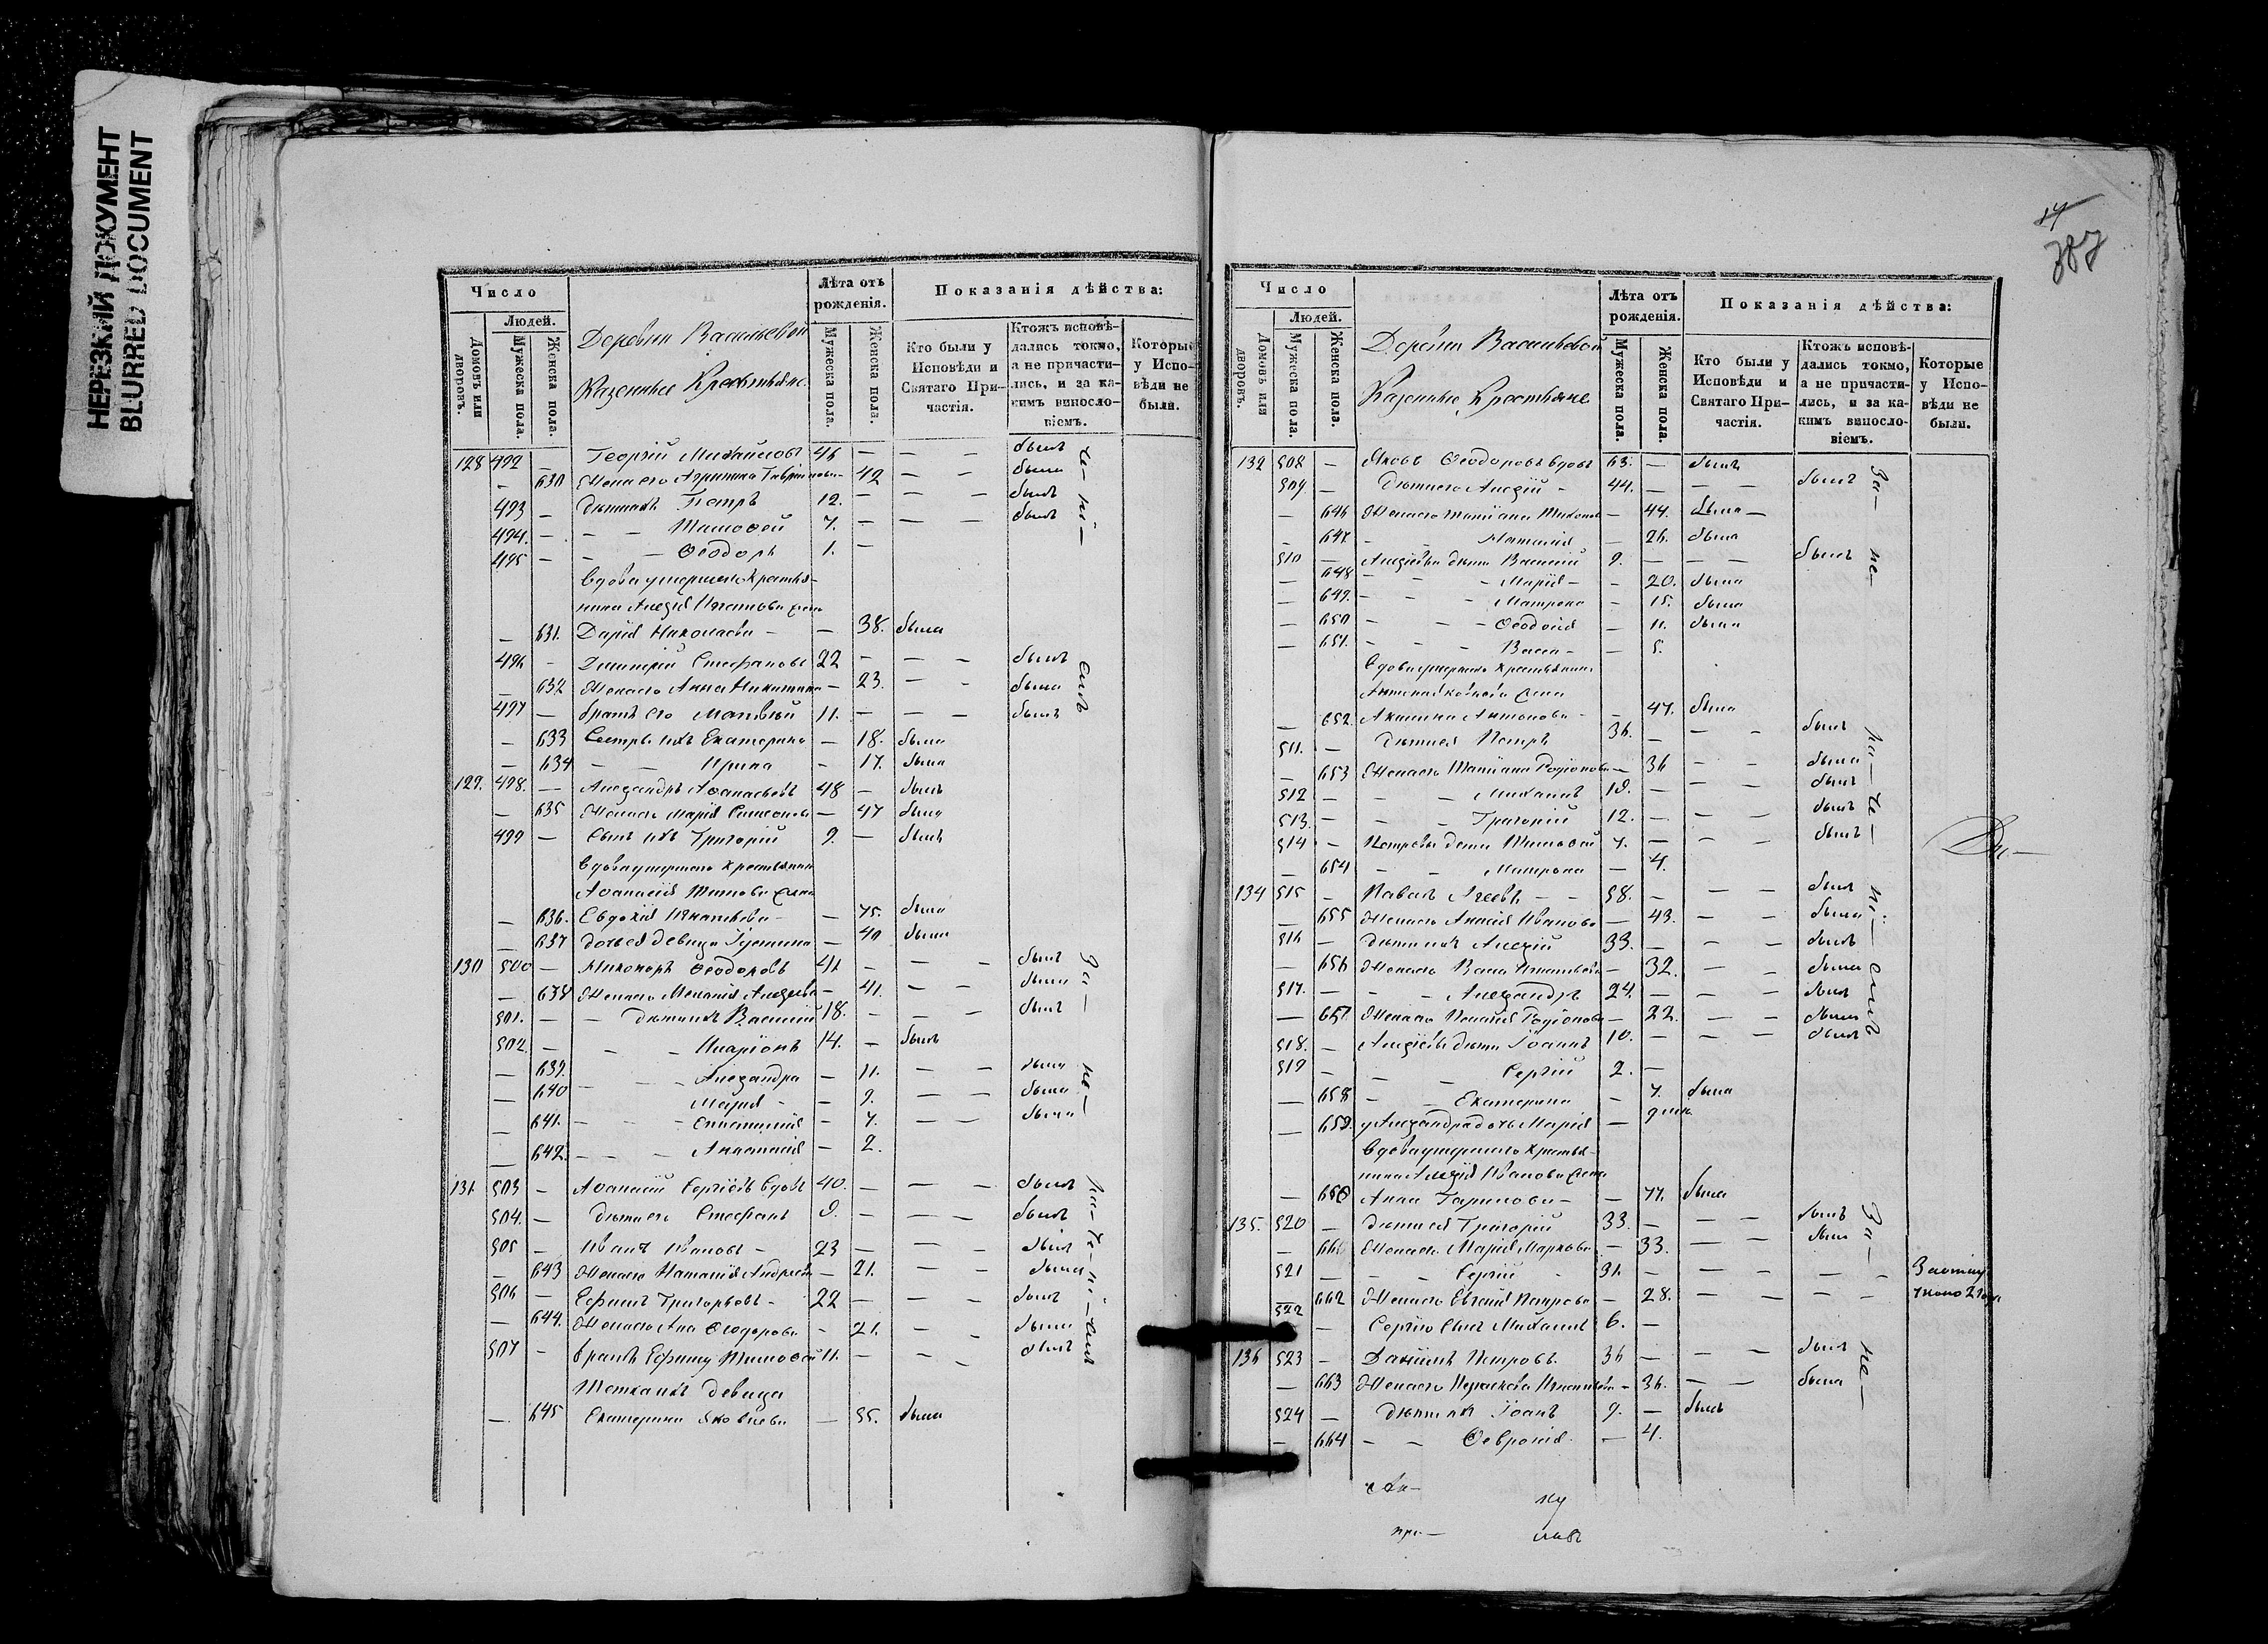 НЕРЕЗКИЙ ДОКУМЕНТ
BLURRED DOCUMENT
Число
Людей.
Домовъ или дворовъ.
Мужеска пола.
Женска пола.
Деревни Васильевой
Казенные Крестьяне.
Лѣта отъ рожденія.
Мужеска пола.
Женска пола.
Показанія дѣйства:
Кто были у Исповѣди и Святаго Причастія.
Ктожъ исповѣдались токмо, а не причастились, и за какимъ винословіемъ.
Которые у Исповѣди не были.
128 492 — Георгій Михайловъ 46 — — — былъ
— 630 Жена его Агрипина — 42 — — была
493 — Дѣти ихъ Петръ 12. — — — былъ
494. — — — Тимофей 7. — — — былъ
495 — — — Ѳеодоръ 1. —
Вдова умершаго Крестья-
нина Алексія Игнатова
— 631. Дарія Николаева — — 38. была
496 — Димитрій Стефановъ 22 — — — былъ
— 632 Жена его Анна Никитина — 23. — — была
497 — братъ его Матвѣй 11. — — — былъ
— 633 Сестры ихъ Екатерина — 18. была
— 634 — — Ирина — 17. была
129. 498. — Александръ Аѳанасьевъ 48 — былъ
— 635 Жена его Марія Симеонова — 47 была
499 — Сынъ ихъ Григорій 9. — былъ
Вдова умершаго Крестьянина
Аѳанасія Титова
— 636. Евдокія Игнатьева — — 75. была
— 637 дочь ея девица Іустина — 40 была
130 500 — Никоноръ Ѳеодоровъ 41 — — — былъ
— 638 Жена его Меланія Алексѣева — 41. — — была
501. — — Дѣти ихъ Василий 18. — — — былъ
502. — — — Иларіонъ 14. — былъ
— 639. — — Александра — 11. — — была
— 640 — — Марія — — 9. — — была
— 641. — — — — 7. — — была
— 642. — — Анастасія — 2.
131. 503 — Аѳанасій Сергіевъ вдовъ 40. — — — былъ
504. — Дѣти его Стефанъ 9. — — — былъ
505 — Иванъ Ивановъ — 23 — — — былъ
— 643 Жена его Наталія Андреева — 21. — — была
506 — Ефимъ Григорьевъ — 22 — — — былъ
— 644. Жена его Анна Ѳеодорова — 21. — — была
507 — братъ Ефиму Тимоѳей 11. — — — былъ
Тетка ихъ девица
— 645 Екатерина Яковлева — 55. была
14
387
Число
Людей.
Домовъ или дворовъ.
Мужеска пола.
Женска пола.
Деревни Васильевой
Казенные Крестьяне.
Лѣта отъ рожденія.
Мужеска пола.
Женска пола.
Показанія дѣйства:
Кто были у Исповѣди и Святаго Причастія.
Ктожъ исповѣдались токмо, а не причастились, и за какимъ винословіемъ.
Которые у Исповѣди не были.
132 508 — Яковъ Ѳеодоровъ вдовъ 63. — былъ
509 — Дѣти его Алексій — 44. — — — былъ
— 646 Жена его Татіана — 44. была —
— 647. — — Наталія — 26. была
510 — Алексіевы дѣти Василій 9. — — — былъ
— 648 — — — Марія — — 20. была
— 649. — — — Матрона — 15. была
— 650 — — — Ѳеодосія — 11. была
— 651. — — — Васса — — 5.
Вдова умершаго Крестьянина
— 652. Акилина Антонова — — 47. была
511. — Дѣти ея Петръ 36. — — — былъ
— 653 Жена его Татіана Родіонова — 36 — — была
512 — — — Михаилъ 18. — — — былъ
513. — — — Григорій 12. — — — былъ
514 — Петровы дѣти Тимоѳей 7. — — — былъ
— 654 — — Матрона — 4.
134 515 — Павелъ — — 58. — — — былъ
— 655 Жена его Анисія Иванова — 43. — — была
516 — Дѣти ихъ Алексій 33. — — — былъ
— 656 Жена его Васса Игнатьева — 32. — — была
517. — — — Александръ 24. — — — былъ
— 657 Жена его Родіонова — 22. — — была
518. — Алексіевы дѣти Іоаннъ 10. — — — былъ
519 — — — Сергій 2. —
— 658 — — Екатерина — 7. была
— 659. у Александра дочь Марія —
Вдова умершаго Крестья-
нина Алексія Иванова
— 660 Анна Гаврилова — — 77. была
135. 520 — Дѣти ея Григорій 33. — — — былъ
— 661 Жена его Марія Маркова — 33. — — была
521 — — — Сергій — 31. — — — — —
— 662 Жена его Евгенія Петрова — 28. — — — —
522 — Сергію Сынъ Михаилъ 6. —
136 523 — Даніилъ Петровъ 36 — — — былъ
— 663 Жена его Параскева — 36. — — была
524 — Дѣти ихъ Іоаннъ 9. — былъ
— 664 — — Ѳеврония — 4.